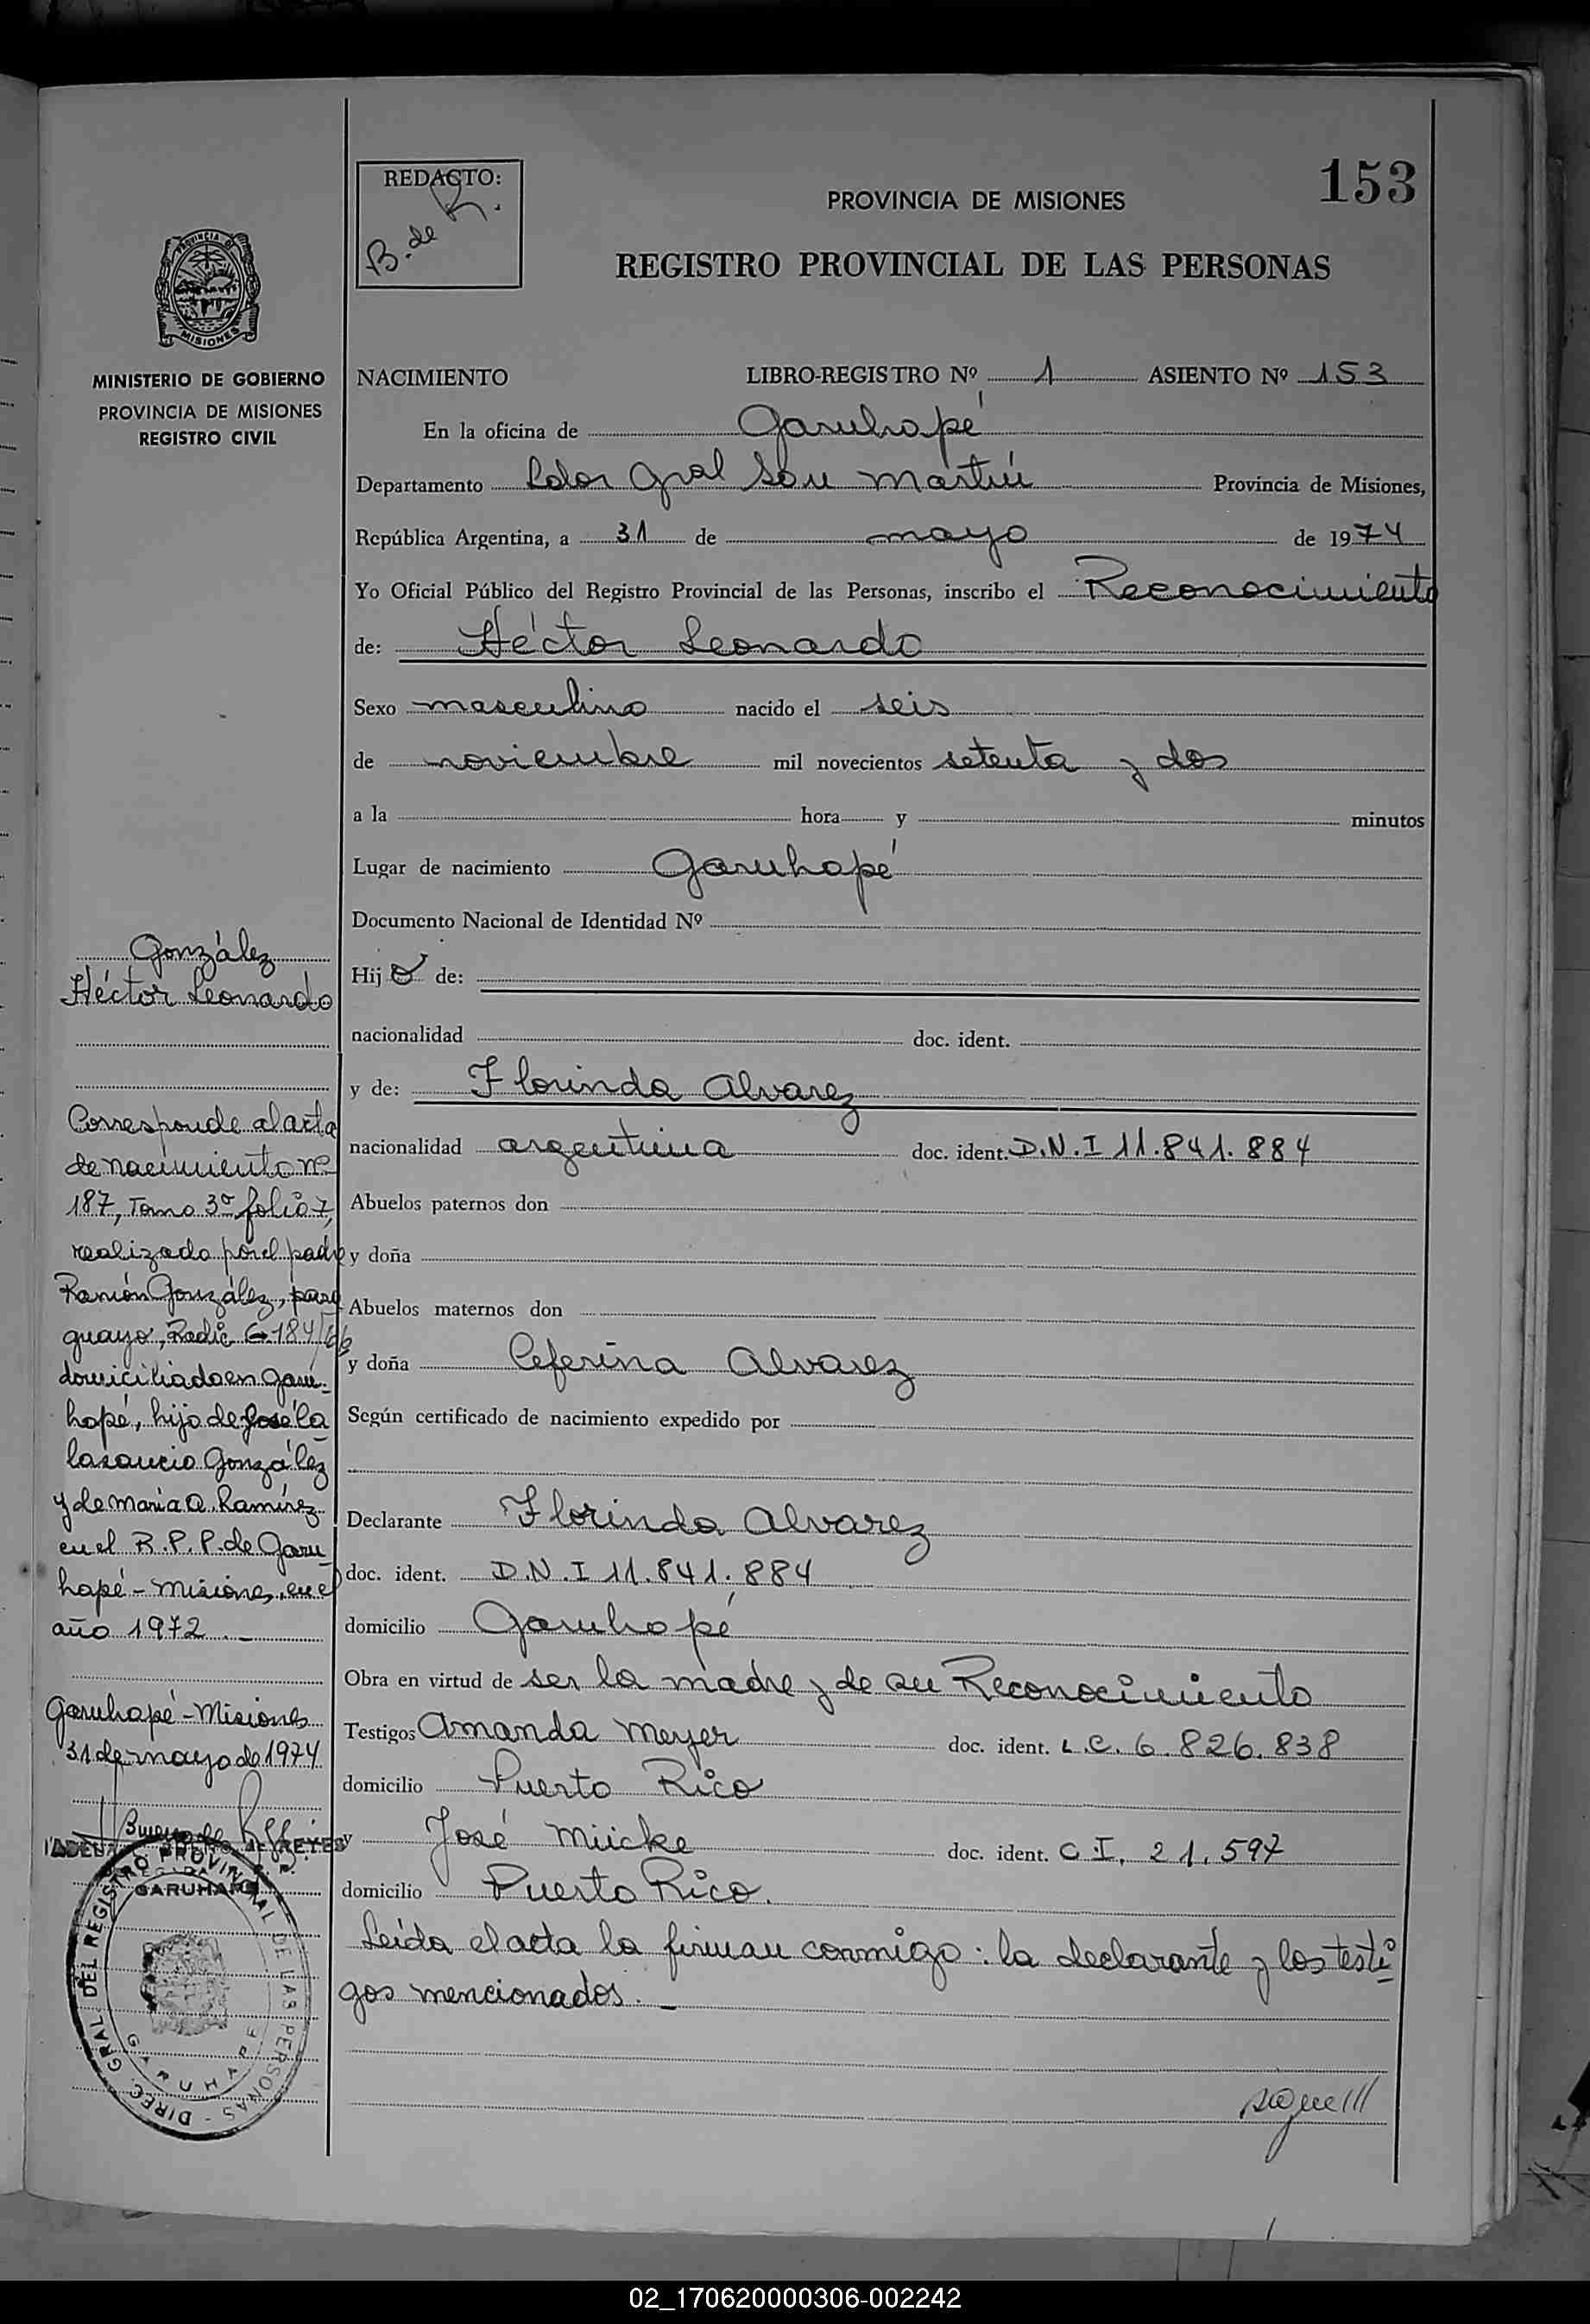 153
REDACTO:
B. de R.
PROVINCIA DE MISIONES
REGISTRO PROVINCIAL DE LAS PERSONAS
PROVINCIA DE
MISIONES
MINISTERIO DE GOBIERNO
PROVINCIA DE MISIONES
REGISTRO CIVIL
González
Héctor Leonardo
Corresponde al acta
de nacimiento nº
187, Tomo 3º folio 7,
realizado por el padre
Ramón González, para
guayo, Radic 184/66
domiciliado en Garu-
hapé, hijo de José Ca
lasancio González
y de María A. Ramírez
en el R.P.P. de Garu
hapé - Misiones, en el
año 1972._
Garuhapé - Misiones
31 de mayo de 1974
REYES
GARUHAPE
DIREC. GRAL DEL REGISTRO PROVINCIAL DE LAS PERSONAS -
GARUHAPE
NACIMIENTO LIBRO-REGISTRO Nº 1 ASIENTO Nº 153
En la oficina de Garuhapé
Departamento Ldor Gral San Martín Provincia de Misiones,
República Argentina, a 31 de mayo de 1974
Yo Oficial Público del Registro Provincial de las Personas, inscribo el Reconocimiento
de: Héctor Leonardo
Sexo masculino nacido el seis
de noviembre mil novecientos setenta y dos
a la hora y minutos
Lugar de nacimiento Garuhapé
Documento Nacional de Identidad Nº
Hijo de:
nacionalidad doc. ident.
y de: Florinda Alvarez
nacionalidad argentina doc. ident. D.N.I 11.841.884
Abuelos paternos don
y doña
Abuelos maternos don
y doña Ceferina Alvarez
Según certificado de nacimiento expedido por
Declarante Florinda Alvarez
doc. ident. D.N.I 11.841.884
domicilio Garuhapé
Obra en virtud de ser la madre y de su Reconocimiento
Testigos Amanda Meyer doc. ident. L.C. 6.826.838
domicilio Puerto Rico
y José Mücke doc. ident. C.I. 21.597
domicilio Puerto Rico.
Leída el acta la firman conmigo: la declarante y los testi-
gos mencionados._
sigue///
02_170620000306-002242